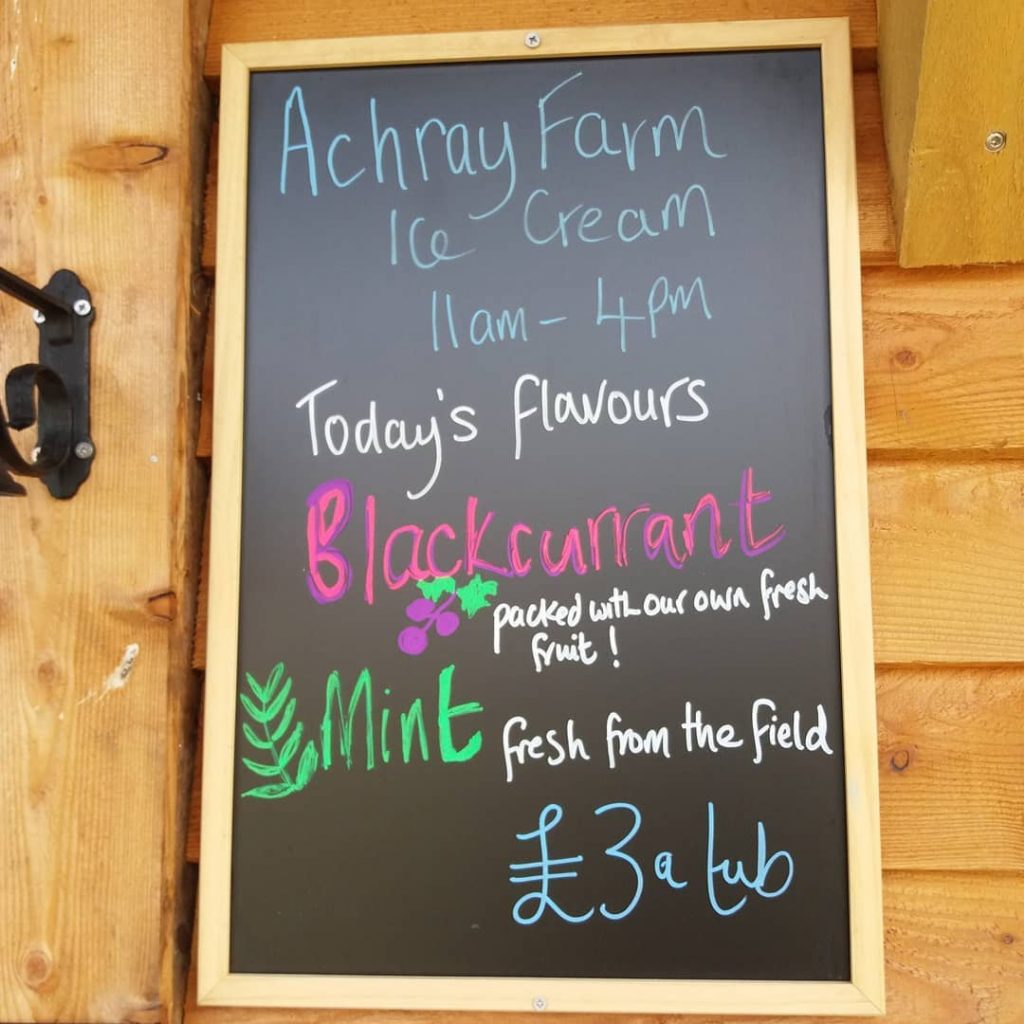 Achray Farm
Ice Cream
11am - 4pm
Today's flavours
Blackcurrant
packed with our own fresh
fruit!
Mint fresh from the field
£3 a tub